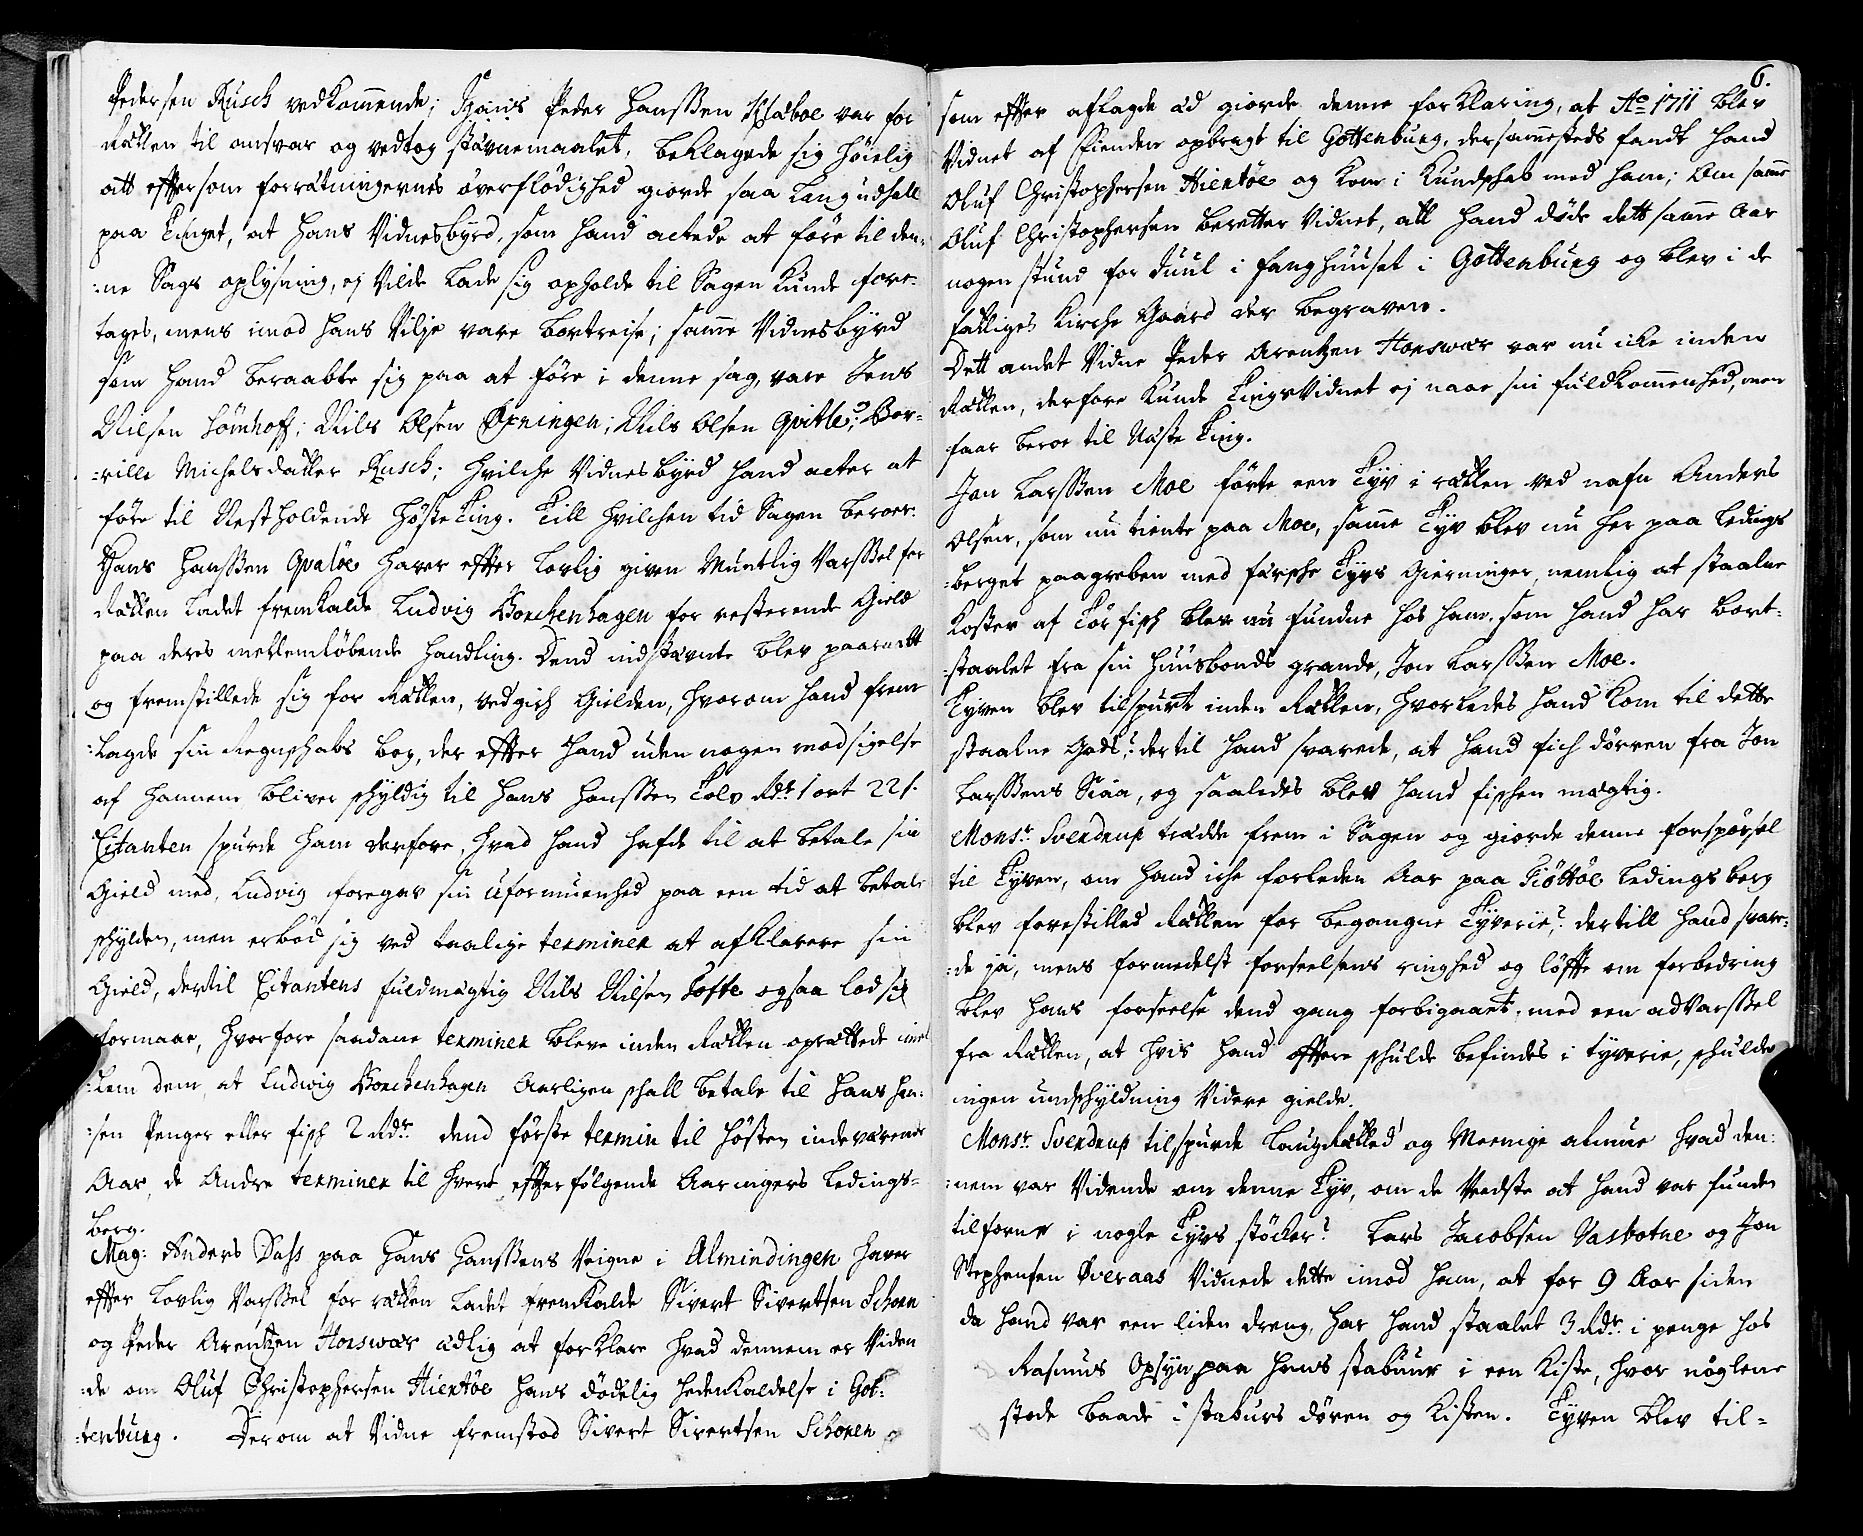 Pedersen Rusch vedkommende; Hans Peder Hanssen Skaboe var for
Rætten til ansvar og vedtog stævnemaalet, beklagede sig höielig
att effersom forrætningernes overflödighed giorde saa lang udhall
paa Tinget, at hans Vidnesbyrd, som hand actede at före til den-
:ne Sags oplysning, ej Vilde lade sig opholde til Sagen Kunde fore-
tages, mens imod hans Vilje vare bortreise; samme Vidnesbyrd
som hand beraabte sig paa at före i denne sag, vare Jens
Nilsen Sömhoff; Nils Olsen Öxningen; Nils Olsen Qvitle; Bor-
:rille Michelsdatter Rusch; hvilche Vidnesbyrd hand acter at
före til Nestholdende höste Ting. Till hvilchen tid Sagen beroer.
Hans Hanssen Qvalöe haver effter lovlig given Muntlig Varssel for
Rætten ladet fremkalde Ludvig Borchenhagen for resterende Gield
paa deres mellemlöbende handling. Dend indstævnte blev paaraabt
og fremstillede sig for Rætten, vedgich Gielden, hvorom hand frem
:lagde sin Regnschabs bog, der effter hand uden nogen modsigelse
af hannem bliver schyldig til Hans Hanssen Tolv Rdr 1 ort 22 s.
Citanten spurde ham derfore, hvad hand hafde til at betale sin
Gield med, Ludvig foregav sin Uformuenhed paa een tid at betale
schylden, men erböd sig ved taalige terminer at afklarere sin
Gield, dertil Citantens fuldmægtig Nils Nilsen Tofte ogsaa lod sig
formaae, hvorfore saadane terminer bleve inden Rætten oprættede imel
:lem dem, at Ludwig Borchenhagen Aarligen schall betale til Hans Han:
:sen Penger eller fisch 2 Rdr dend förste termin til hösten indeværende
Aar, de Andre terminer til hvert effterfölgende Aaringers Ledings-
berg.
Mag: Anders Dass paa Hans Hanssens Veigne i Almindingen haver
effter lovlig Varssel for rætten ladet fremkalde Sivert Sivertsen Schoen
og Peder Arentzen Honswær ædlig at forklare hvad dennem er Viden
:de om Oluf Christophersen Hientöe hans dödelig hedenkaldelse i Got:
:tenburg. Derom at Vidne fremstod Sivert Sivertsen Schonen
6.
som effter aflagde æd giorde denne forklaring, at Ao 1711 blev
Vidnet af Fienden opbragt til Gottenburg, dersammesteds fandt hand
Oluf Christophersen Hientöe og kom i Kundschab med ham; Om samme
Oluf Christophersen beretter Vidnet, att hand döde dett samme Aar
nogen stund for Juul i fanghuuset i Gottenburg og blev i de
fattiges Kirche Gaard der begraven.
Dett andet Vidne Peder Arentzen Honswær var nu icke inden
Rætten, derfore kunde TingsVidnet ej naae sin fuldkommenhed, men
faar beroe til Næste Ting.
Jon Larssen Moe förte een Tyv i rætten ved nafn Anders
Olsen, som nu tiente paa Moe, samme Tyv blev nu her paa Ledings
:berget paagreben med færsche Tyvs Gierninger, nemlig at staalne
Koster af Tör fisch blev nu fundne hos ham, som hand har bort-
:staalet fra sin huusbonds grande, Jon Larssen Moe.
Tyven blev tilspurt inden Rætten, hvorledes hand kom til dette
staalne Gods? dertil hand svarede, at hand fich dörren fra Jon
Larssens Siaa, og saaledes blev hand fischen mægtig.
Monsr. Svendrup trædde frem i Sagen og giorde denne forspörsel
til Tyven, om hand iche forleden Aar paa Tiøttöe Ledingsberg
blev forestilled Rætten for begangne Tyverie? dertill hand svare-
:de ja, mens formedelst forseelsens ringhed og löffte om forbedring
blev hans forseelse dend gang forbigaaet, med een adVarssel
fra Rætten, at hvis hand offtere schulde befindes i tyverie, schulde
ingen undschyldning Videre gielde.
Monsr. Svendrup tilspurde LaugRætted og Meenige almue hvad den:
:nem var Vidende om denne Tyv, om de Vedste at hand var funden
tilforne i nogle Tyvs stöcker? Lars Jacobsen Vasbotne og Jon
Stephensen Sveraas Vidnede dette imod ham, at for 9 Aar siden
da hand var een liden dreng, har hand staalet 3 Rdr i penge hos
Rasmus Opsyn paa hans stabuur i een Kiste, hvor nöglene
stode baade i staburs dören og Kisten. Tyven blev til-